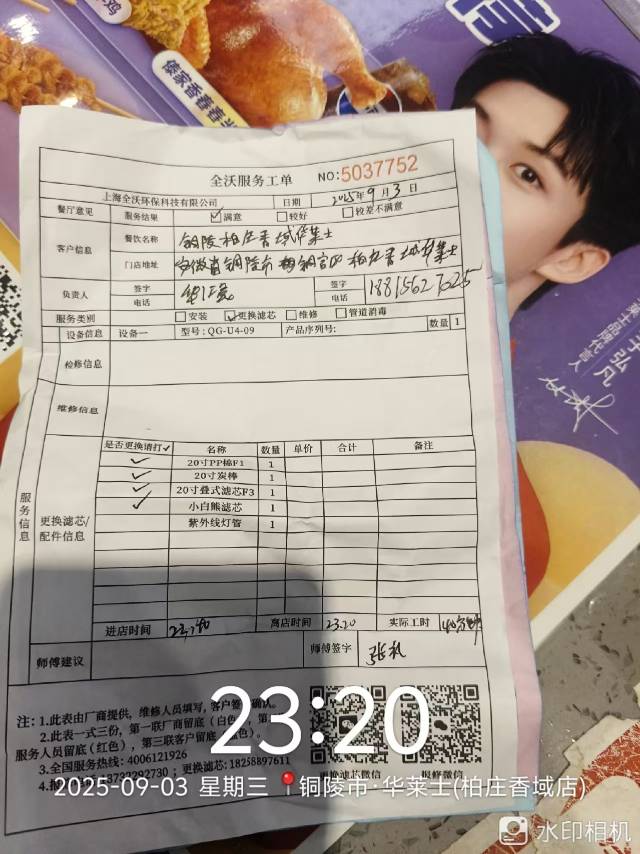 全沃服务工单 NO:5037752
上海全沃环保科技有限公司 日期 2025年9月3日
餐厅意见 服务结果 ☑满意 □较好 □较差不满意
客户信息 餐饮名称 铜陵柏庄香域华莱士
门店地址 安徽省铜陵市铜官区柏庄香域华莱士
负责人 签字 签字
电话 电话 18815627025
服务类别 □安装 ☑更换滤芯 □维修 □管道消毒
设备信息 设备一 型号:QG-U4-09 产品序列号: 数量 1
检修信息
维修信息
服务信息
更换滤芯/配件信息
是否更换请打✓ 名称 数量 单价 合计 备注
✓ 20寸PP棉F1 1
✓ 20寸炭棒 1
✓ 20寸叠式滤芯F3 1
✓ 小白熊滤芯 1
紫外线灯管 1
进店时间 离店时间 23.20 实际工时 40分钟
师傅建议 师傅签字
注: 1.此表由厂商提供,维修人员填写,客户签 确认。
2.此表一式三份,第一联厂商留底(白色),第
服务人员留底(红色),第三联客户留底 色)。
3.全国服务热线:4006121926
更换滤芯:18258897611
更换滤芯微信 报修微信
23:20
2025-09-03 星期三 铜陵市·华莱士(柏庄香域店)
水印相机
傣家香香香当
士品牌代言人